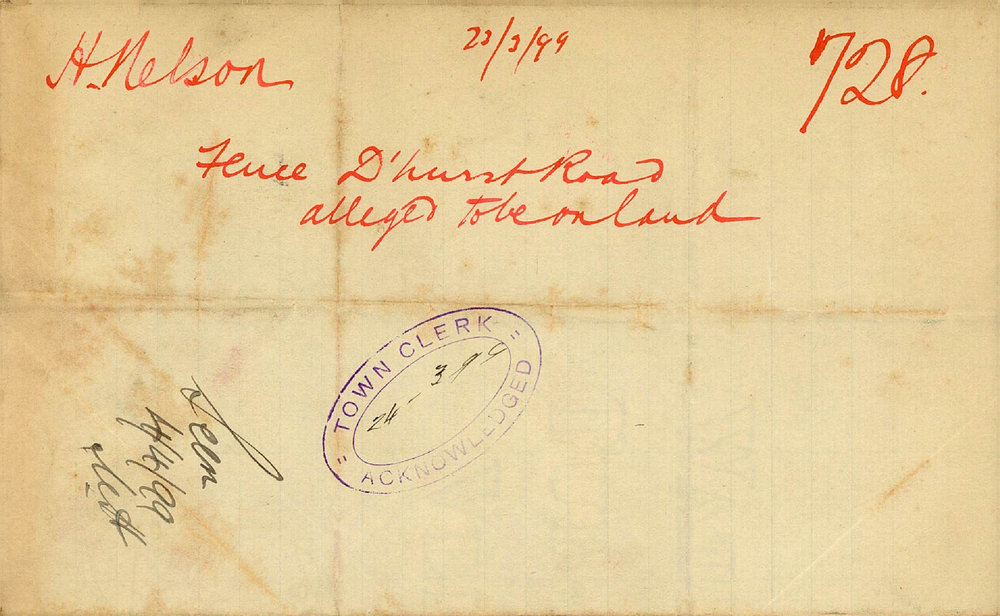 H. Nelson
23/3/99
728.
Fence D'hurst Road
alleged to be on land
" TOWN CLERK "
24-3 99
ACKNOWLEDGED
Seen
4/4/99